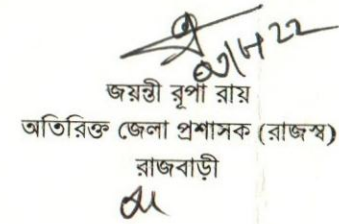 জয়ন্তী রূপা রায়
অতিরিক্ত জেলা প্রশাসক (রাজস্ব)
রাজবাড়ী